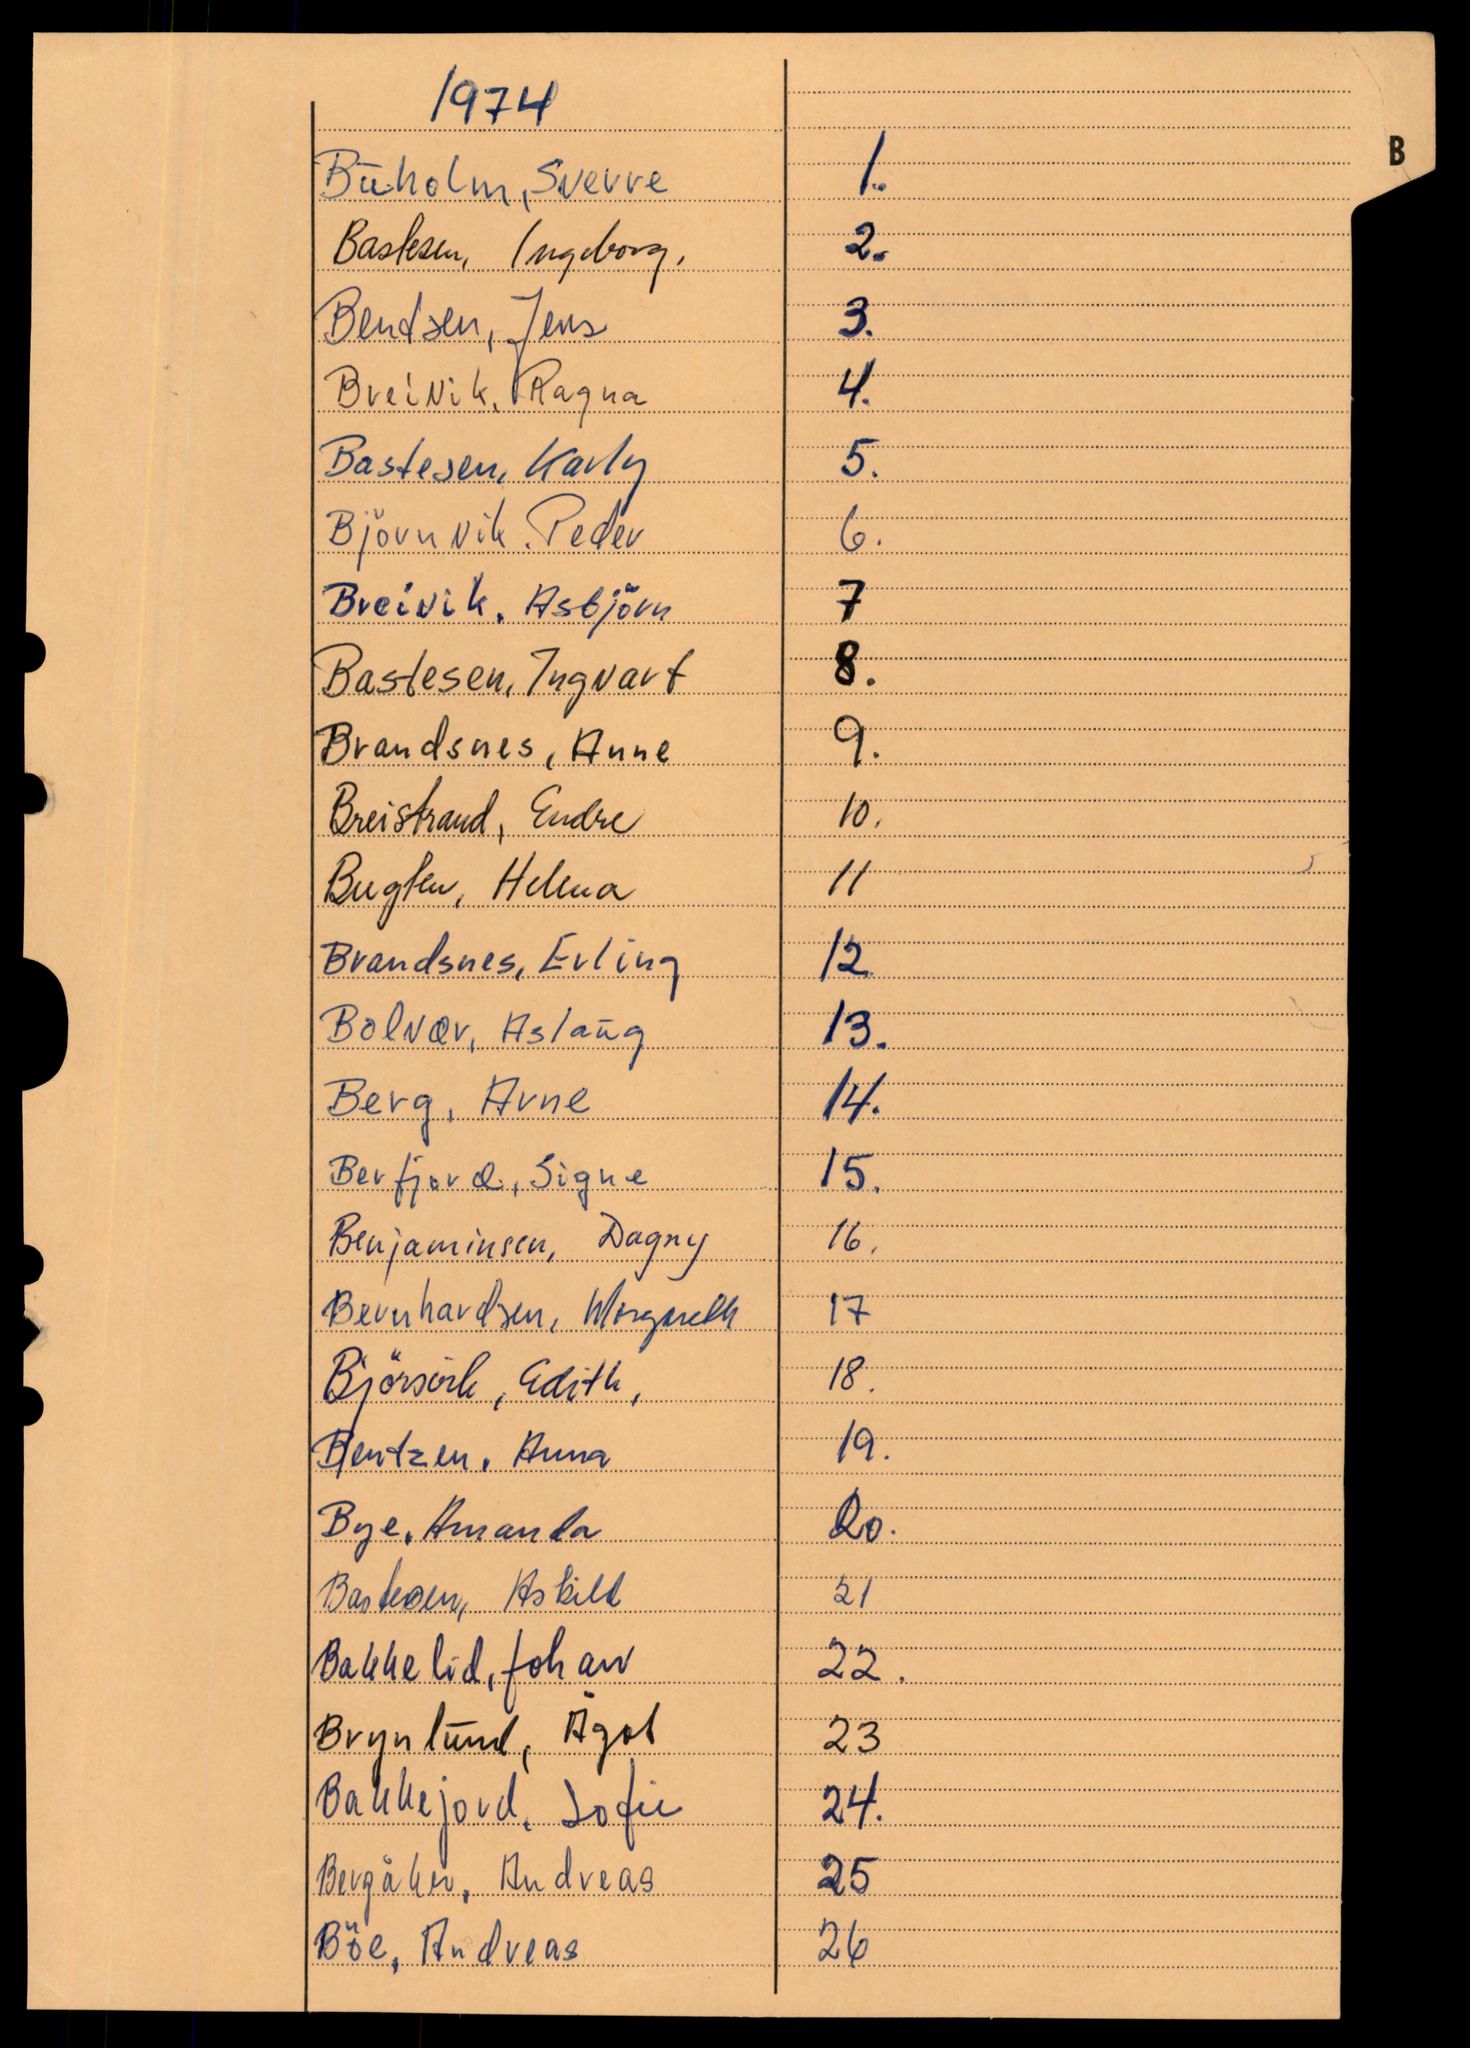 1974
B
Buholm, Sverre 1.
Bastesen, Ingeborg, 2.
Bendsen, Jens 3.
Breivik, Ragna 4.
Bastesen, Karly 5.
Björnvik. Peder 6.
Breivik, Asbjörn 7
Bastesen, Ingvart 8.
Brandsnes, Anne 9.
Breistrand, Endre 10.
Bugten, Helena 11
Brandsnes, Erling 12
Bolvær, Aslaug 13.
Berg, Arne 14.
Berfjord, Signe 15.
Benjaminsen, Dagny 16.
Bernhardsen, Margareth 17
Björsvik, Edith, 18.
Bentzen, Anna 19.
Bye, Amanda 20.
Bastesen, Askild 21
Bakkelid, Johan 22.
Brynlund, Ågot 23
Bakkejord, Sofie 24.
Bergåker, Andreas 25
Böe, Andreas 26